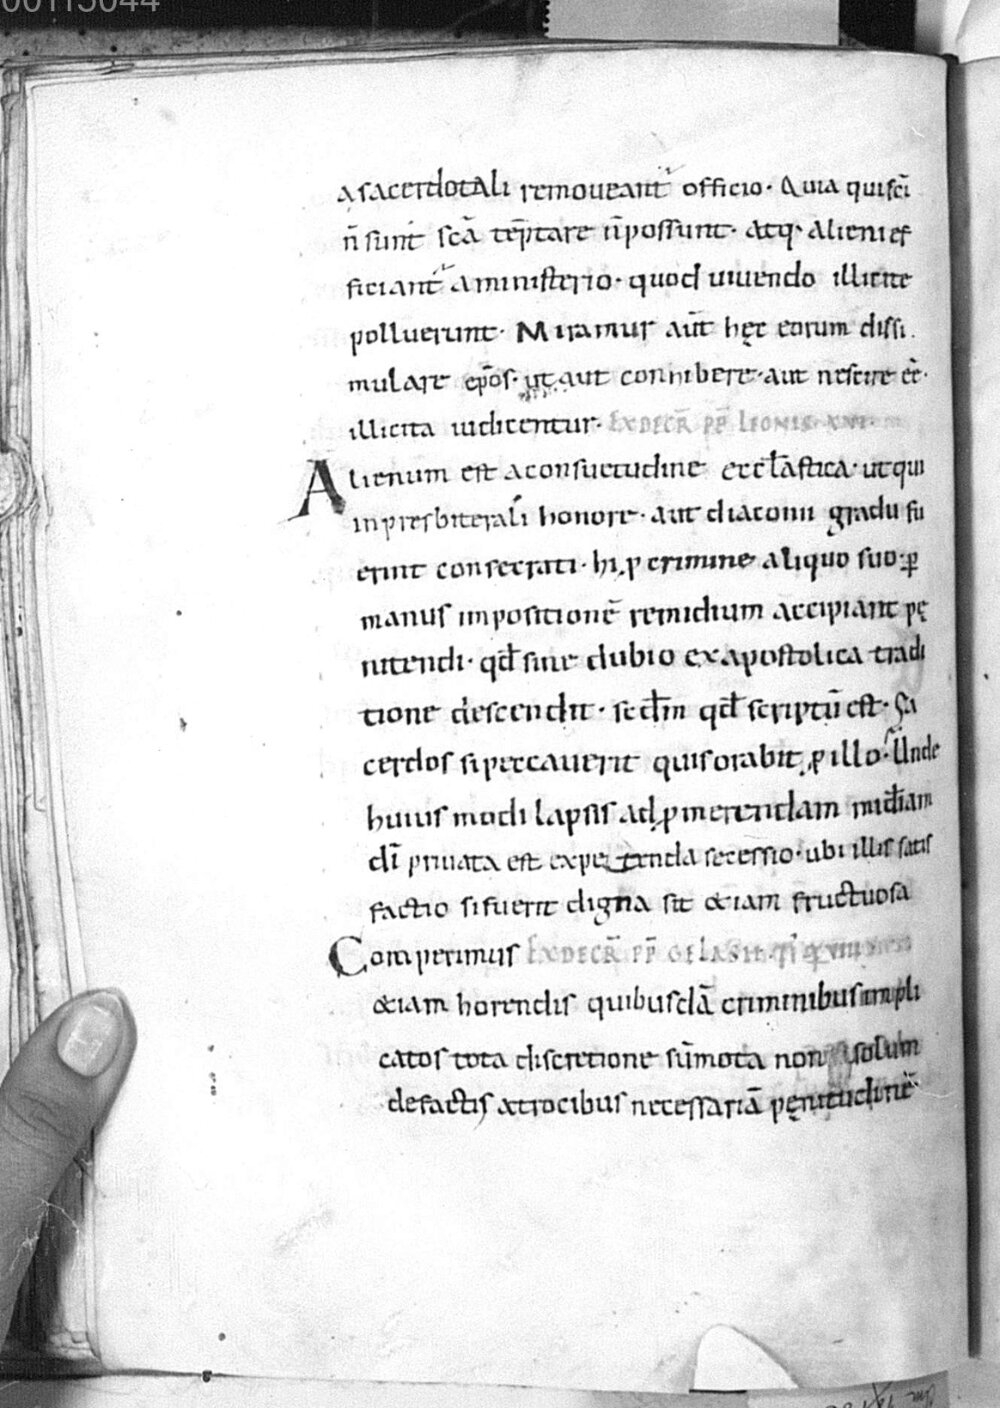 00113044
a sacerdotali remoueant᷑ officio· Quia qui sc̄i
n̄ sunt scā tēptare n̄ possunt· atq· alieni ef
ficiant᷑ a ministerio· quod uiuendo illicite
polluerunt· Miramur aūt hęc eorum dissi
mulare ep̄os· ut aut connibere· aut nescire eē·
illicita iudicentur· EX DECR̄ PP̄ LEONIS·
Alienum est a consuetudine eccl̄astica· ut qui
in presbiterali honore· aut diaconii gradu fu
erint consecrati· hi ꝓ crimine aliquo suo ꝑ
manus impositionē remidium accipiant pę
nitendi· qđ sine dubio ex apostolica tradi
tione descendit· secđm qđ scriptū est· Sa
cerdos si peccauerit quis orabit ꝓ illo· Unde
huius modi lapsis ad ꝓmerendam miđiam
dī priuata est expetenda secessio· ubi illis satis
factio si fuerit digna sit &iam fructuosa
Comperimus EX DECR̄ PP̄ GELASII·
&iam horendis quibusdā criminibus impli
catos tota discretione sūmota non solum
de factis atrocibus necessariā pęnitudinē·